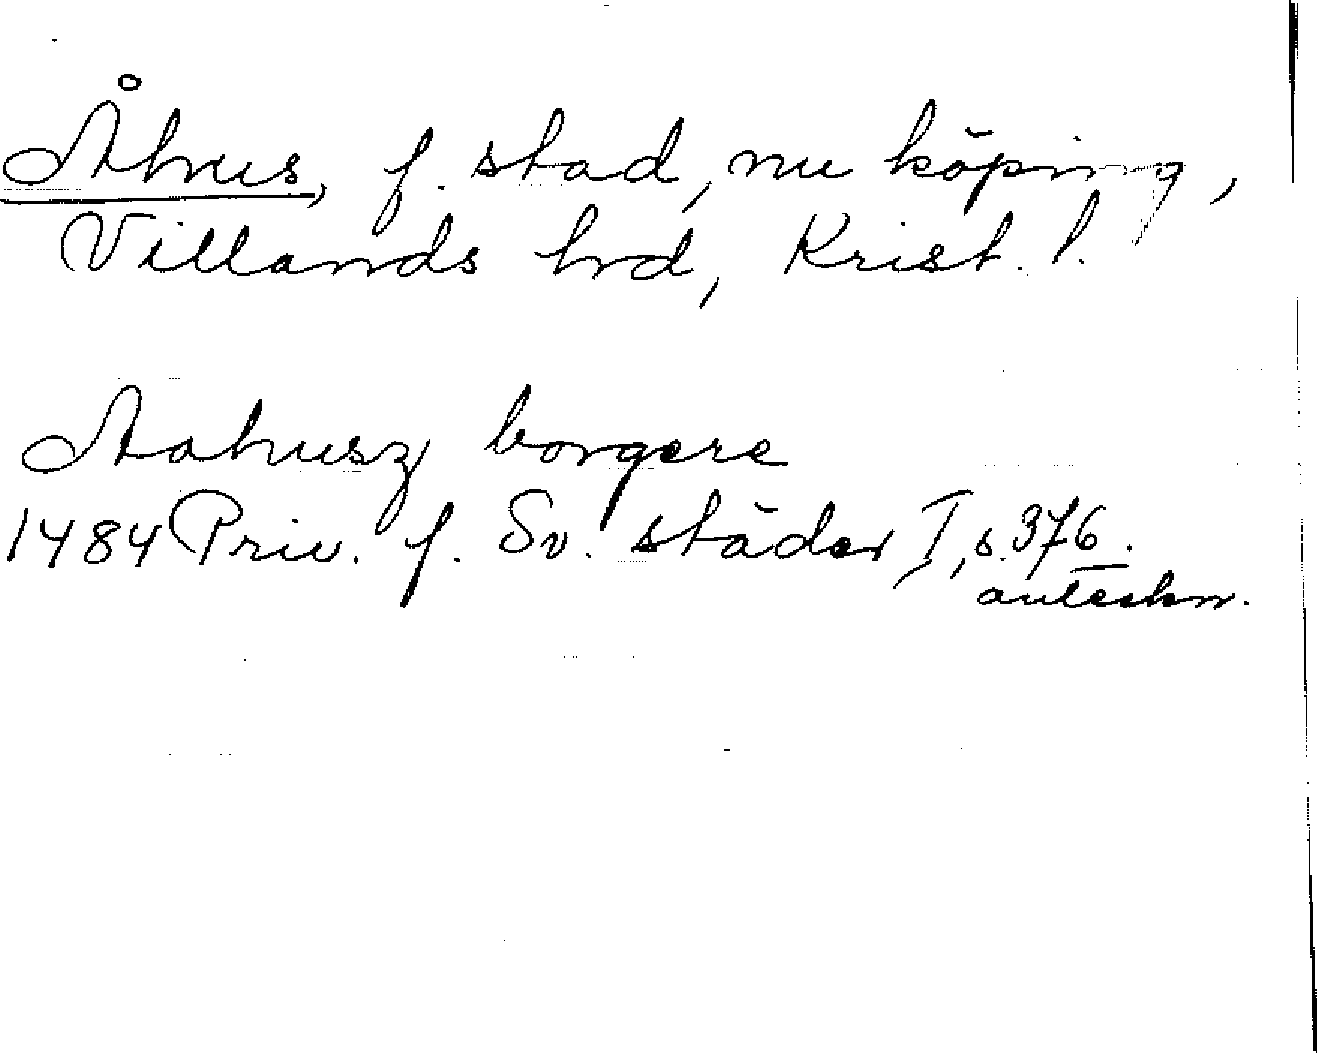 Åhus, f. stad, nu köping,
Villands hrd, Krist. l.
Aahusz borgere
1484 Priv. f. Sv. städer I, s. 376.
anteckn.